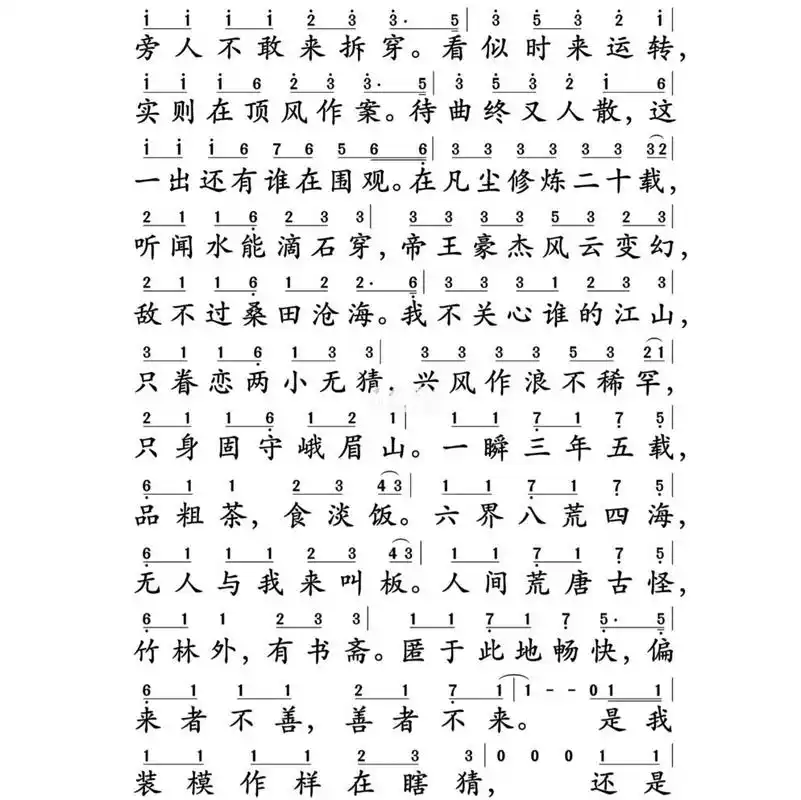 i i i i 2 3 3· 5 | 3 5 3 2 i |
旁人不敢来拆穿。看似时来运转,
i i i 6 2 3 3· 5 | 3 5 3 2 i 6 |
实则在顶风作案。待曲终又人散,这
i i i 6 7 6 5 6 6 | 3 3 3 3 3 3 32 |
一出还有谁在围观。在凡尘修炼二十载,
2 1 1 6 2 3 3 | 3 3 3 3 5 3 2 3 |
听闻水能滴石穿,帝王豪杰风云变幻,
2 1 1 6 1 2 2· 6 | 3 3 3 1 2 3 3 |
敌不过桑田沧海。我不关心谁的江山,
3 1 1 6 1 3 3 | 3 3 3 3 5 3 21 |
只眷恋两小无猜,兴风作浪不稀罕,
2 1 1 6 1 2 1 | 1 1 7 1 7 5 |
只身固守峨眉山。一瞬三年五载,
6 1 1 2 3 43 | 1 1 7 1 7 5 |
品粗茶,食淡饭。六界八荒四海,
6 1 1 1 2 3 43 | 1 1 7 1 7 5 |
无人与我来叫板。人间荒唐古怪,
6 1 1 2 3 3 | 1 1 7 1 7 5· 5 |
竹林外,有书斋。匿于此地畅快,偏
6 1 1 1 2 1 7 1 | 1 - - 0 1 1 |
来者不善,善者不来。是我
1 1 1 1 2 3 3 | 0 0 0 1 1 |
装模作样在瞎猜,还是